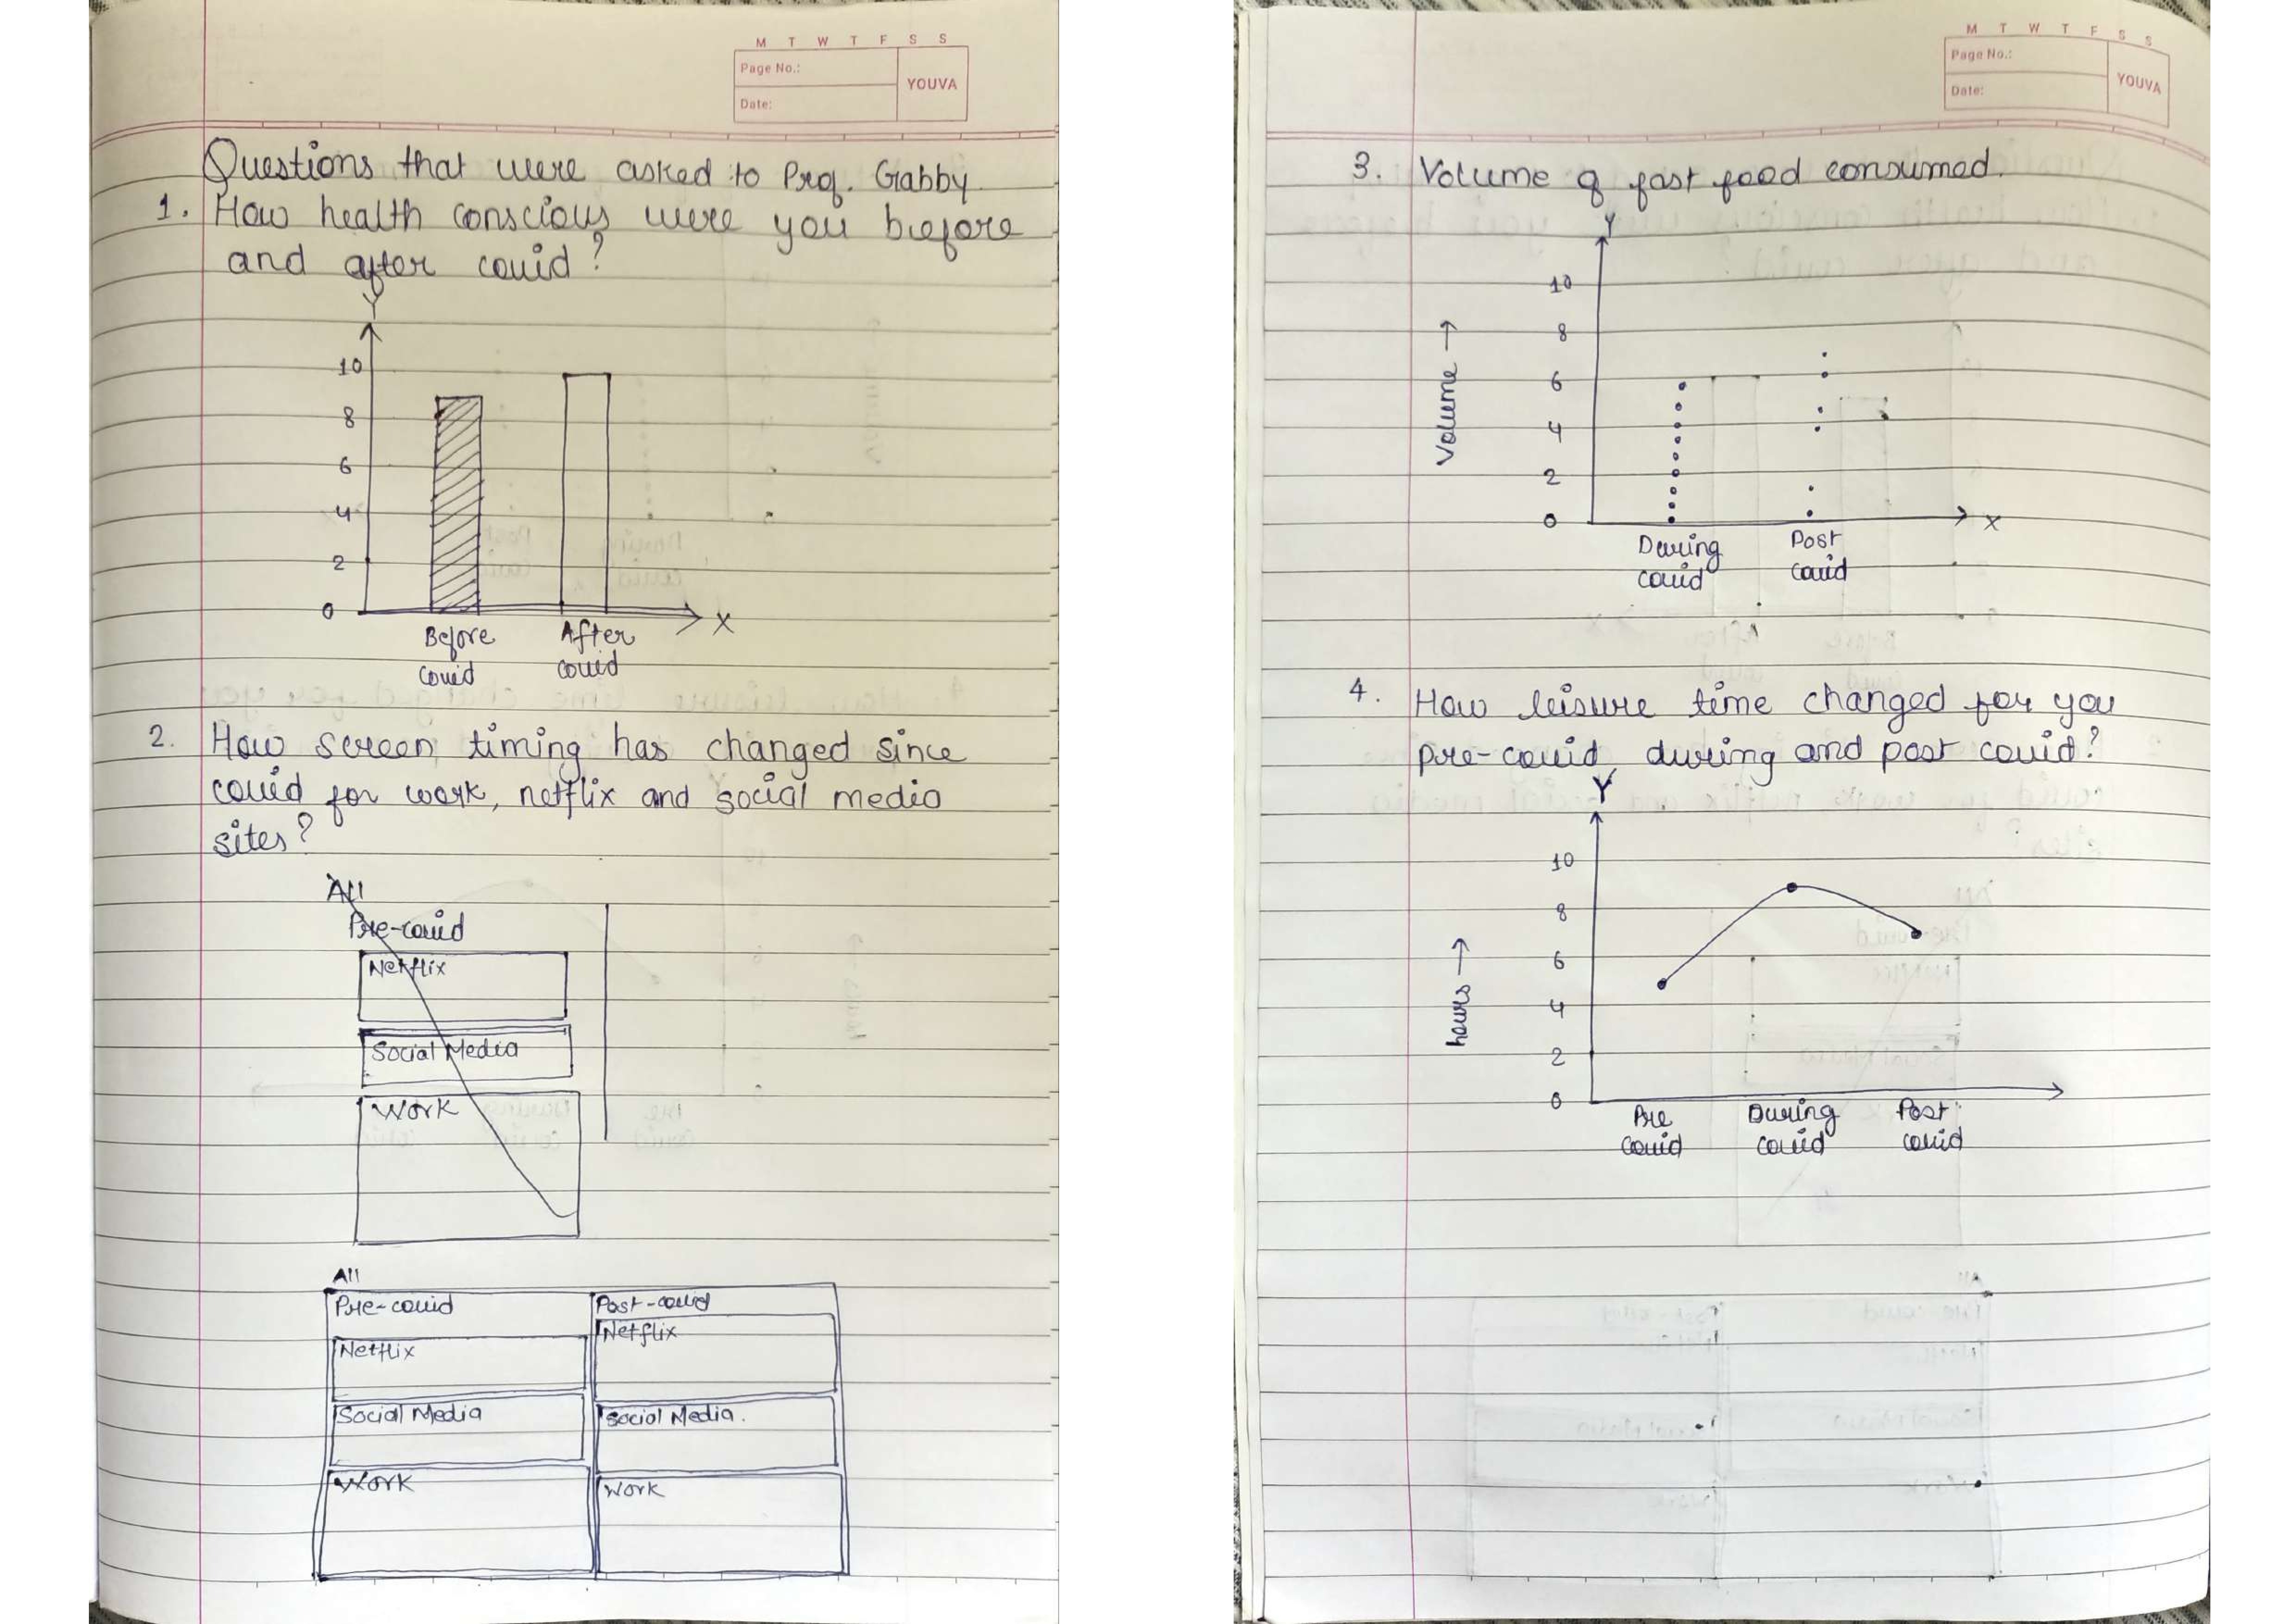 M T W T F S S
Page No.:
YOUVA
Date:
Questions that were asked to Prof. Gabby
1. How health conscious were you before
and after covid?
Y
10
8
6
4
2
0
X
Before
covid
After
covid
2. How screen timing has changed since
covid for work, netflix and social media
sites?
All
Pre-covid
Netflix
Social Media
Work
All
Pre-covid
Post-covid
Netflix
Netflix
Social Media
Social Media.
Work
Work
M T W T F S S
Page No.:
YOUVA
Date:
3. Volume of fast food consumed.
Y
10
8
6
4
2
0
Volume →
X
During
covid
Post
covid
4. How leisure time changed for you
pre-covid, during and post covid?
Y
10
8
6
4
2
0
hours →
Pre
covid
During
covid
Post
covid